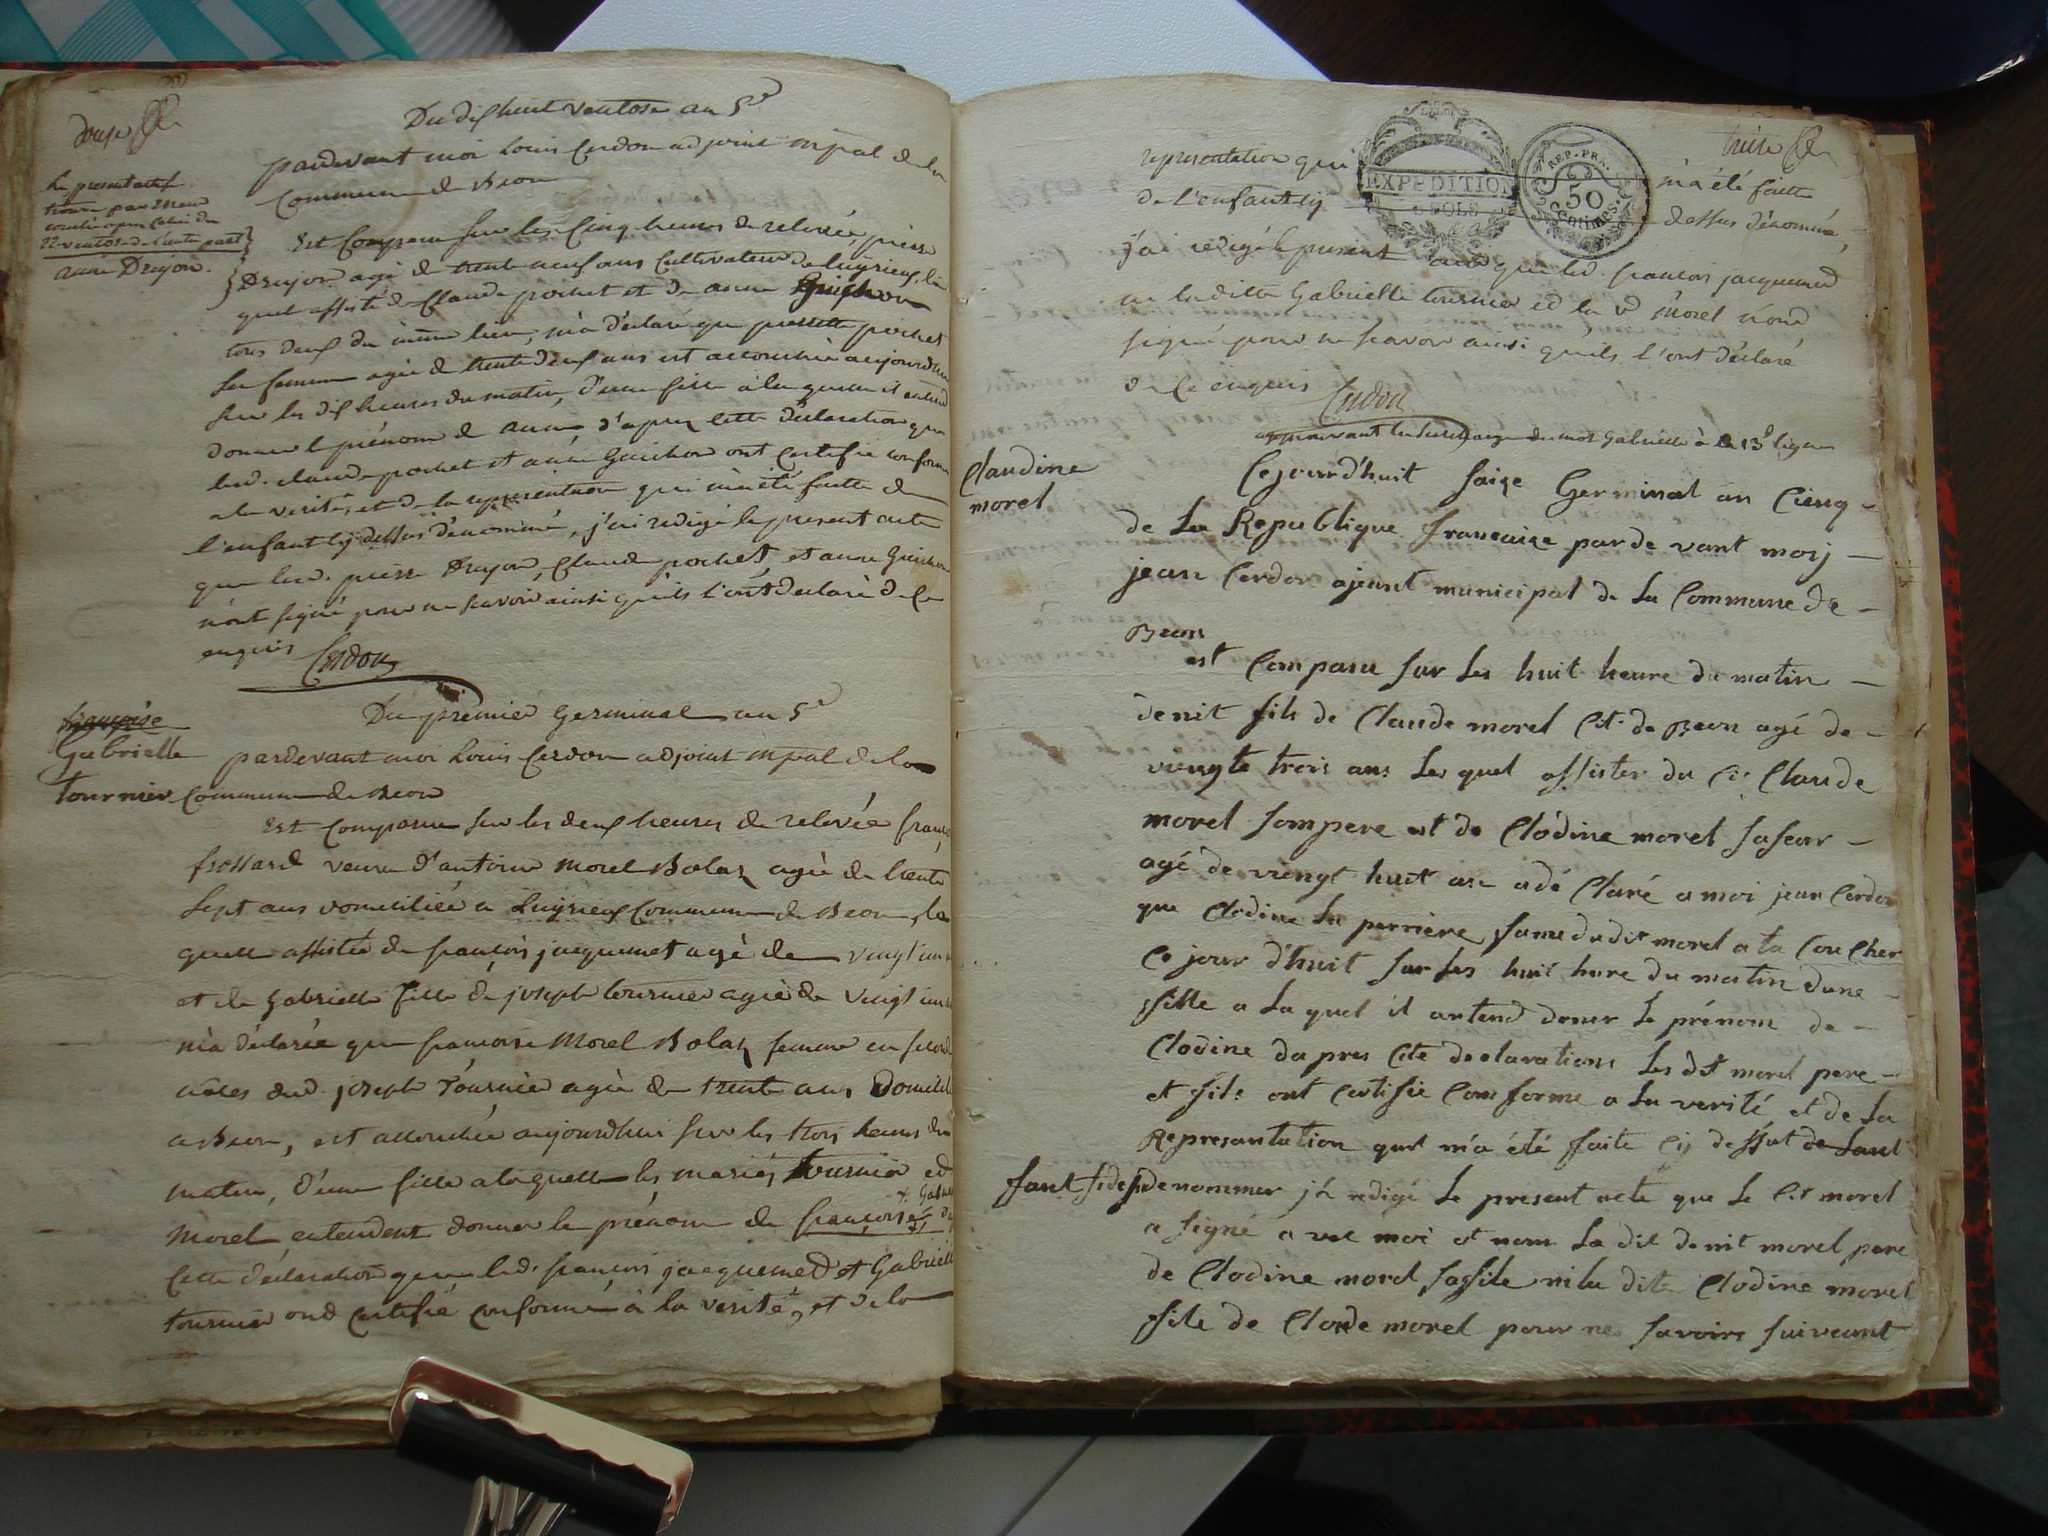 douze
Du dix huit ventose an 5e
pardevant moi Louis Cerdon adjoint mpal de la
Commune de Beon
Le present acte
22 ventose
anne Drujon.
Est Comparu sur les Cinq heures de relevée, pierre
Drujon agé de trente neuf ans Cultivateur de luyrieux, le
quel assisté de Claude pochet et de anne Guichon
tous deux du même lieu, m'a déclaré que pierrette pochet
sa femme agée de trente deux ans est accouchée aujourd'hui
sur les dix heures du matin, d'une fille à laquelle il entend
donner le prénom de anne d'apres cette déclaration que
lesd. claude pochet et anne Guichon ont certifié conforme
a la verité, et de la representation qui m'a été faitte de
l'enfant cy dessus dénommé, j'ai redigé le present acte
que lesd. pierre Drujon, Claude pochet, et anne Guichon
n'ont signé pour ne savoir ainsi qu'ils l'ont declaré de ce
enquis Cerdon
Du premier Germinal an 5e
françoise
Gabrielle
tournier
pardevant moi Louis Cerdon adjoint mpal de la
Commune de Beon
Est Comparue sur les deux heures de relevée
frossard veuve d'antoine Morel Bolaz agée de trente
sept ans domiciliée a Luyrieux Commune de Beon, la
quelle assistée de françois jacquemet agé de vingt
et de Gabrielle fille de joseph tournier agée de vingt
m'a déclarée que françoise Morel Bolaz femme en second
nôces dud. joseph Tournier agée de trente ans Domicilié
a Beon, est accouchée aujourdhui sur les trois heures du
matin, d'une fille a laquelle les mariés tournier et
Morel entendent donner le prénom de françoise
Cette déclaration que lesd. françois jacquemed et Gabrielle
tournier ond certifié conforme à la verité, et de la
treize
EXPEDITION
REP. FRA.
50
Centimes.
representation qui m'a été faitte
de l'enfant cy dessus dénommé,
j'ai redigé le present acte que led. françois jacquemed
ne laditte Gabrielle tournier ed la ve Morel n'ond
signé pour ne scavoir ainsi qu'ils l'ont déclaré
de ce enquis Cerdon
approuvant la surcharge du mot Gabrielle à la 13e ligne
Claudine
morel
Cejourd'huit saize Germinal an Cienq -
de La Republique francaize par de vant moij -
jean Cerdon ajount municipal de La Commune de -
Beon
est Comparu sur Les huit heure du matin -
denit fils de Claude morel Cit. de Beon agé de -
viengte trois ans Les quel assister du Cit Claude
morel sompere et de Clodine morel saseur -
agé de viengt huit an adé Claré a moi jean Cerdon
que Clodine La perriere fame du dit morel a la Cou Cher
Ce jour d'huit sur Les huit hure du matin dune -
fille a La quel il antend doner Le prénom de -
Clodine da pres Cete declarations Les dit morel pere -
et fils ont Certifie Comforme a La verité et de La
Representation quil m'a été faite Cij dessut de Lant
fant denommer j'é redigé Le present acte que Le Cit morel
a signé a vec moi et nom La dit denit morel pere
de Clodine morel saffile ni la dite Clodine morel
file de Clorde morel pour ne savoirs suiveant